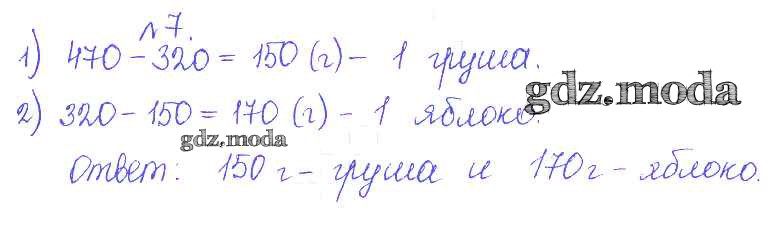 № 7.
1) 470 - 320 = 150 (г) - 1 груша.
2) 320 - 150 = 170 (г) - 1 яблоко.
gdz.moda
gdz.moda
Ответ: 150 г - груша и 170 г - яблоко.